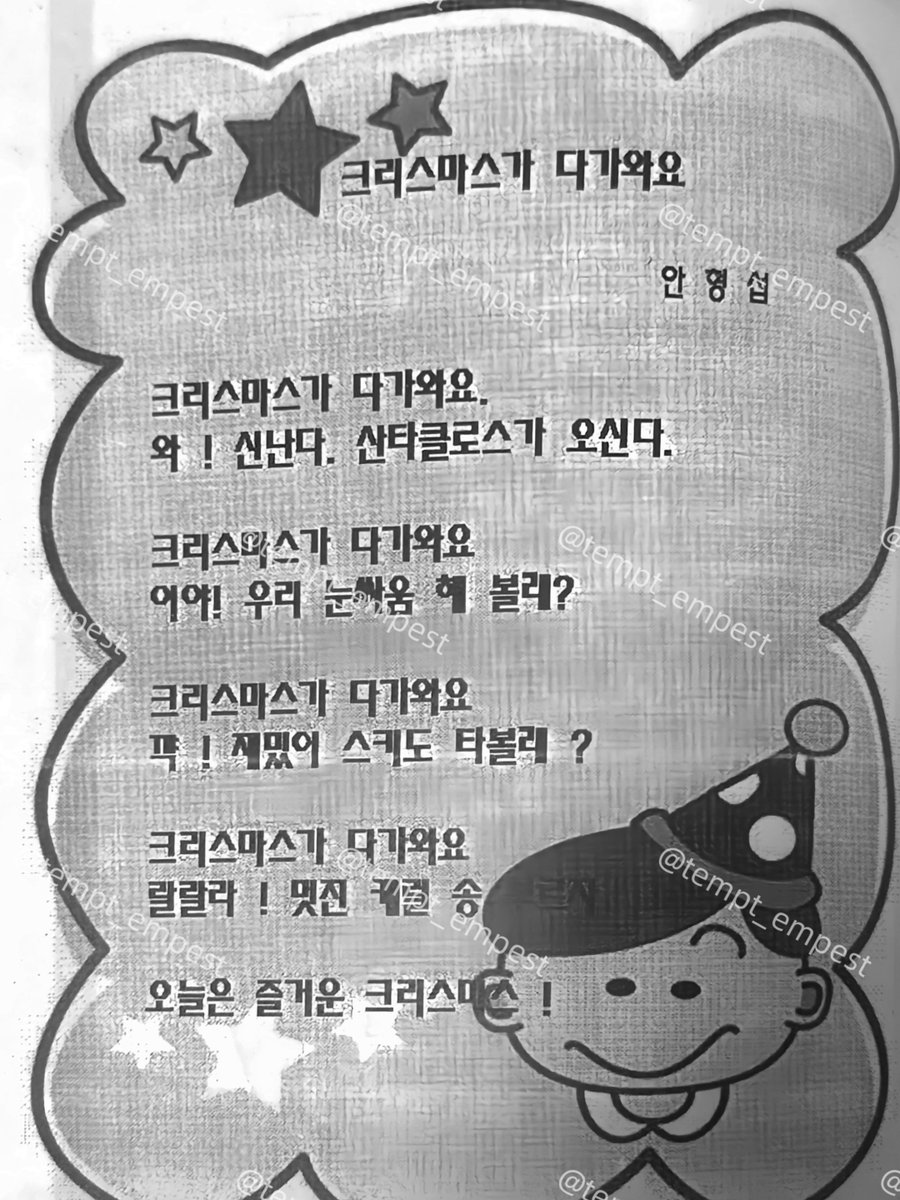 크리스마스가 다가와요
안 형 섭
크리스마스가 다가와요.
와 ! 신난다. 산타클로스가 오신다.
크리스마스가 다가와요
이야! 우리 눈싸움 해 볼래?
크리스마스가 다가와요
꺅 ! 재밌어 스키도 타볼래 ?
크리스마스가 다가와요
랄랄라 ! 멋진 캐럴 송
오늘은 즐거운 크리스마스 !
@tempt_empest